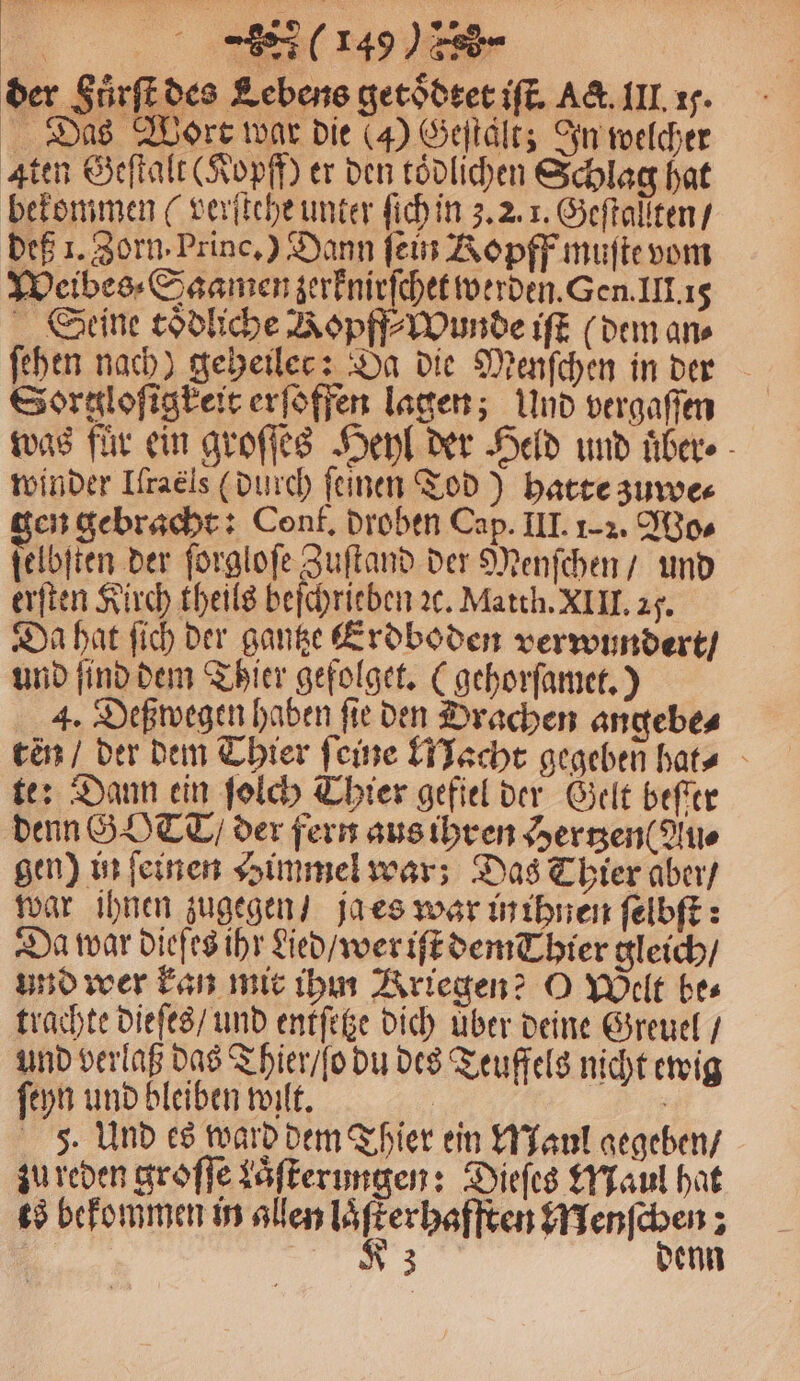 (149)
der Fuͤrſt des Lebens getoͤdtet iſt. Act. III. 15.
Das Wort war die (4) Geſtaͤlt; In welcher
4ten Geſtalt (Kopff) er den toͤdlichen Schlag hat
bekommen ( verſtehe unter ſich in 3. 2. 1. Geſtallten /
deß 1. Zorn. Princ.) Dann ſein Kopff muſte vom
Weibes⸗Saamen zerknirſchet werden. Gen. III. 15
Seine toͤdliche Kopff⸗Wunde iſt (dem an⸗
ſehen nach) geheilet: Da die Menſchen in der
Sorgloſigkeit erſoffen lagen; Und vergaſſen
was fuͤr ein groſſes Heyl der Held und uͤber⸗
winder Iſraëls (durch ſeinen Tod) hatte zuwe⸗
gen gebracht: Conf. droben Cap. III. 1-2. Wo⸗
ſelbſten der ſorgloſe Zuſtand der Menſchen / und
erſten Kirch theils beſchrieben ꝛc. Matth. XIII. 25.
Da hat ſich der gantze Erdboden verwundert/
und ſind dem Thier gefolget. (gehorſamet.)
4. Deßwegen haben ſie den Drachen angebe⸗
tẽn / der dem Thier ſeine Macht gegeben hat⸗
te: Dann ein ſolch Thier gefiel der Gelt beſſer
denn GOTT/ der fern aus ihren Hertzen(Au⸗
gen) in ſeinen Himmel war; Das Thier aber/
war ihnen zugegen / ja es war in ihnen ſelbſt:
Da war dieſes ihr Lied/wer iſt dem Thier gleich/
und wer kan mit ihm Kriegen? O Welt be⸗
trachte dieſes/ und entſetze dich uͤber deine Greuel /
und verlaß das Thier/ſo du des Teuffels nicht ewig
ſeyn und bleiben wilt.
5. Und es ward dem Thier ein Maul gegeben/
zu reden groſſe Laͤſterungen: Dieſes Maul hat
es bekommen in allen laͤſterhafften Menſchen;
K 3 denn